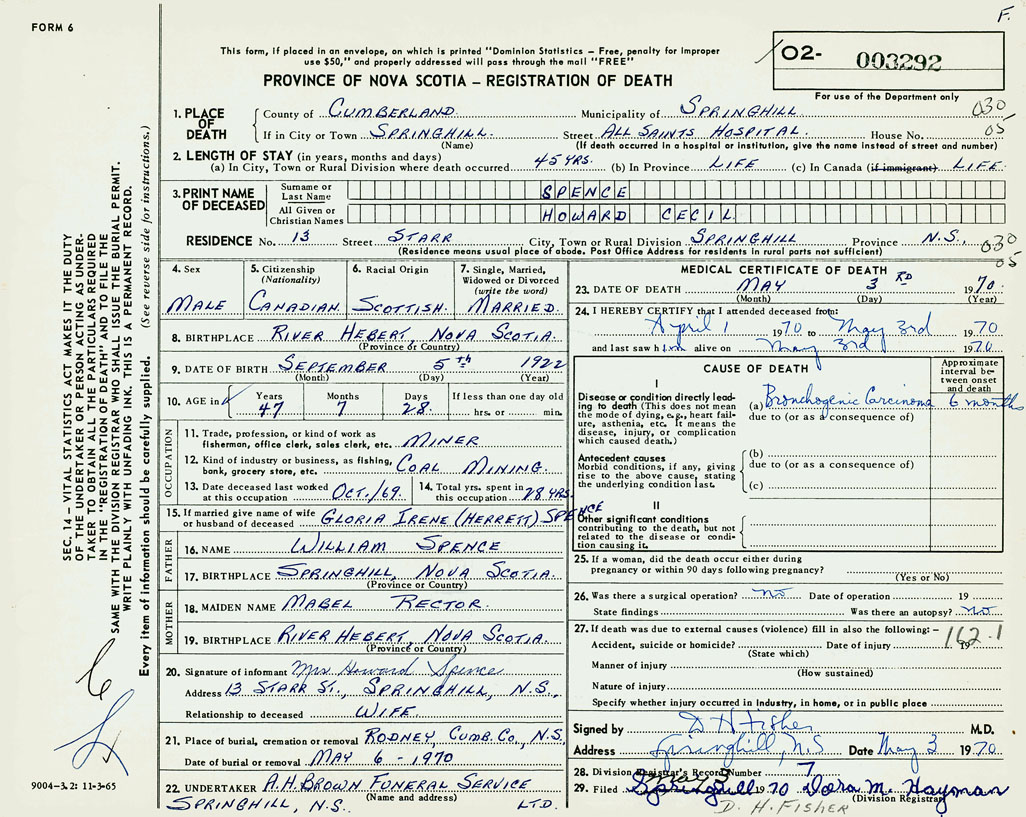 F.
FORM 6
This form, if placed in an envelope, on which is printed "Dominion Statistics – Free, penalty for improper
use $50," and properly addressed will pass through the mail "FREE"
PROVINCE OF NOVA SCOTIA – REGISTRATION OF DEATH
02- 003292
For use of the Department only
030
05
1. PLACE OF DEATH
County of CUMBERLAND. Municipality of SPRINGHILL
If in City or Town SPRINGHILL. Street ALL SAINTS HOSPITAL. House No.
(Name) (If death occurred in a hospital or institution, give the name instead of street and number)
2. LENGTH OF STAY (in years, months and days)
(a) In City, Town or Rural Division where death occurred 45 YRS. (b) In Province LIFE (c) In Canada (if immigrant) LIFE.
3. PRINT NAME OF DECEASED
Surname or Last Name SPENCE
All Given or Christian Names HOWARD CECIL
RESIDENCE No. 13 Street STARR City, Town or Rural Division SPRINGHILL Province N.S.,
(Residence means usual place of abode. Post Office Address for residents in rural parts not sufficient)
030
05
4. Sex
MALE
5. Citizenship
(Nationality)
CANADIAN
6. Racial Origin
SCOTTISH.
7. Single, Married,
Widowed or Divorced
(write the word)
MARRIED.
8. BIRTHPLACE RIVER HEBERT, NOVA SCOTIA.
(Province or Country)
9. DATE OF BIRTH SEPTEMBER 5th 1922
(Month) (Day) (Year)
10. AGE in
Years 47
Months 7
Days 28.
If less than one day old
hrs. or min.
OCCUPATION
11. Trade, profession, or kind of work as
fisherman, office clerk, sales clerk, etc. MINER
12. Kind of industry or business, as fishing,
bank, grocery store, etc. COAL MINING.
13. Date deceased last worked
at this occupation OCT./69.
14. Total yrs. spent in
this occupation 28 YRS.
15. If married give name of wife
or husband of deceased GLORIA IRENE (HERRETT) SPENCE
FATHER
16. NAME WILLIAM SPENCE
17. BIRTHPLACE SPRINGHILL, NOVA SCOTIA.
(Province or Country)
MOTHER
18. MAIDEN NAME MABEL RECTOR.
19. BIRTHPLACE RIVER HEBERT, NOVA SCOTIA.
(Province or Country)
20. Signature of informant Mrs Howard Spence
Address 13 STARR ST., SPRINGHILL, N.S.,
Relationship to deceased WIFE.
21. Place of burial, cremation or removal RODNEY, CUMB. CO., N.S.
Date of burial or removal MAY 6 - 1970
22. UNDERTAKER A.H. BROWN FUNERAL SERVICE
(Name and address)
SPRINGHILL, N.S. LTD.
MEDICAL CERTIFICATE OF DEATH
23. DATE OF DEATH MAY 3RD 1970.
(Month) (Day) (Year)
24. I HEREBY CERTIFY that I attended deceased from:
April 1 1970 to May 3rd 1970
and last saw him alive on May 3rd 1970
CAUSE OF DEATH
Approximate
interval be-
tween onset
and death
I
Disease or condition directly lead-
ing to death (This does not mean
the mode of dying, e.g., heart fail-
ure, asthenia, etc. It means the
disease, injury, or complication
which caused death.)
(a) Bronchogenic Carcinoma 6 months
due to (or as a consequence of)
Antecedent causes
Morbid conditions, if any, giving
rise to the above cause, stating
the underlying condition last.
(b)
due to (or as a consequence of)
(c)
II
Other significant conditions
contributing to the death, but not
related to the disease or condi-
tion causing it.
25. If a woman, did the death occur either during
pregnancy or within 90 days following pregnancy?
(Yes or No)
26. Was there a surgical operation? No Date of operation 19
State findings Was there an autopsy? No
27. If death was due to external causes (violence) fill in also the following: –
162.1
Accident, suicide or homicide? Date of injury 19
(State which)
Manner of injury
(How sustained)
Nature of injury
Specify whether injury occurred in industry, in home, or in public place
Signed by D H Fisher M.D.
Address Springhill, N.S Date May 3 1970
28. Division Registrar's Record Number 7
29. Filed May 3 1970 Dora M. Hayman
Springhill
(Division Registrar)
D. H. FISHER
SEC. 14 – VITAL STATISTICS ACT MAKES IT THE DUTY
OF THE UNDERTAKER OR PERSON ACTING AS UNDER-
TAKER TO OBTAIN ALL THE PARTICULARS REQUIRED
IN THE "REGISTRATION OF DEATH" AND TO FILE THE
SAME WITH THE DIVISION REGISTRAR WHO SHALL ISSUE THE BURIAL PERMIT.
WRITE PLAINLY WITH UNFADING INK. THIS IS A PERMANENT RECORD.
Every item of information should be carefully supplied. (See reverse side for instructions.)
9004–3.2: 11-3-65